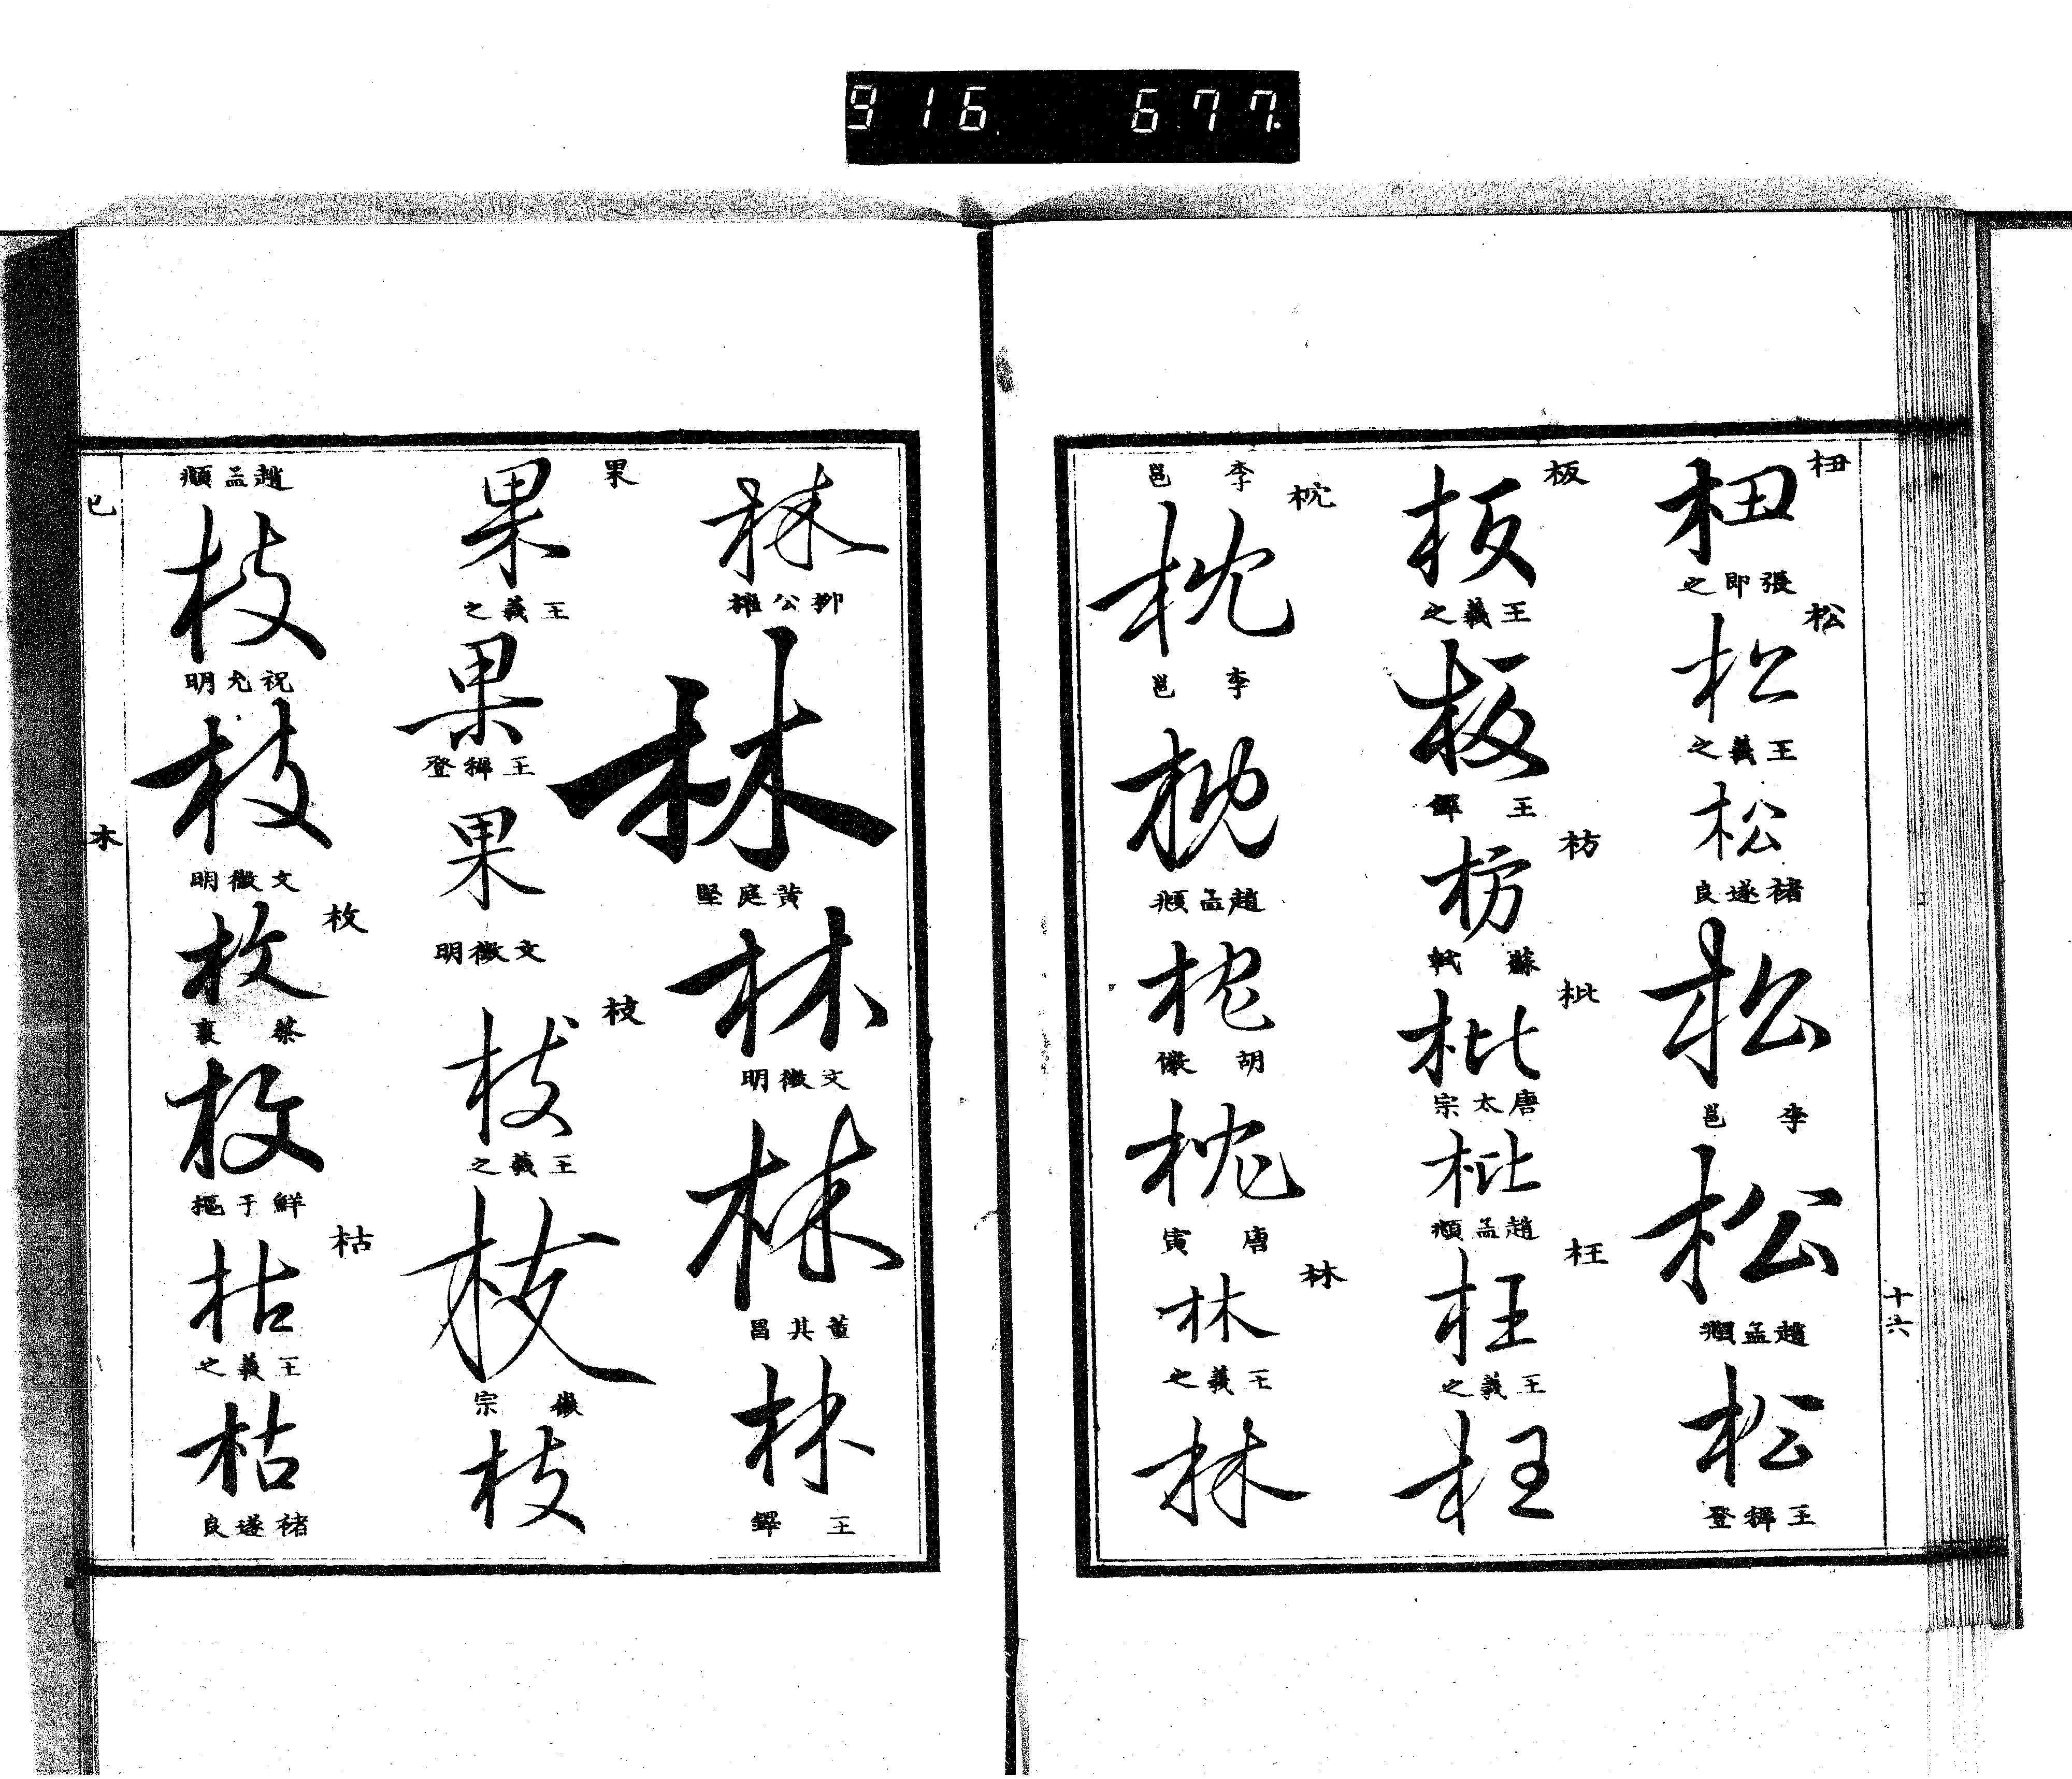 916 677.
十六
杻
杻
張即之
松
松
王羲之
松
褚遂良
松
李邕
松
趙孟頫
松
王穉登
板
板
王羲之
板
王鐸
枋
枋
蘇軾
枇
枇
唐太宗
枇
趙孟頫
枉
枉
王羲之
枉
李邕
枕
枕
李邕
枕
趙孟頫
枕
胡儼
枕
唐寅
林
林
王羲之
林
林
柳公權
林
黃庭堅
林
文徵明
林
董其昌
林
王鐸
果
果
王羲之
果
王穉登
果
文徵明
枝
枝
王羲之
枝
徽宗
枝
趙孟頫
枝
祝允明
枝
文徵明
枚
枚
蔡襄
枚
鮮于樞
枯
枯
王羲之
枯
褚遂良
巳
木